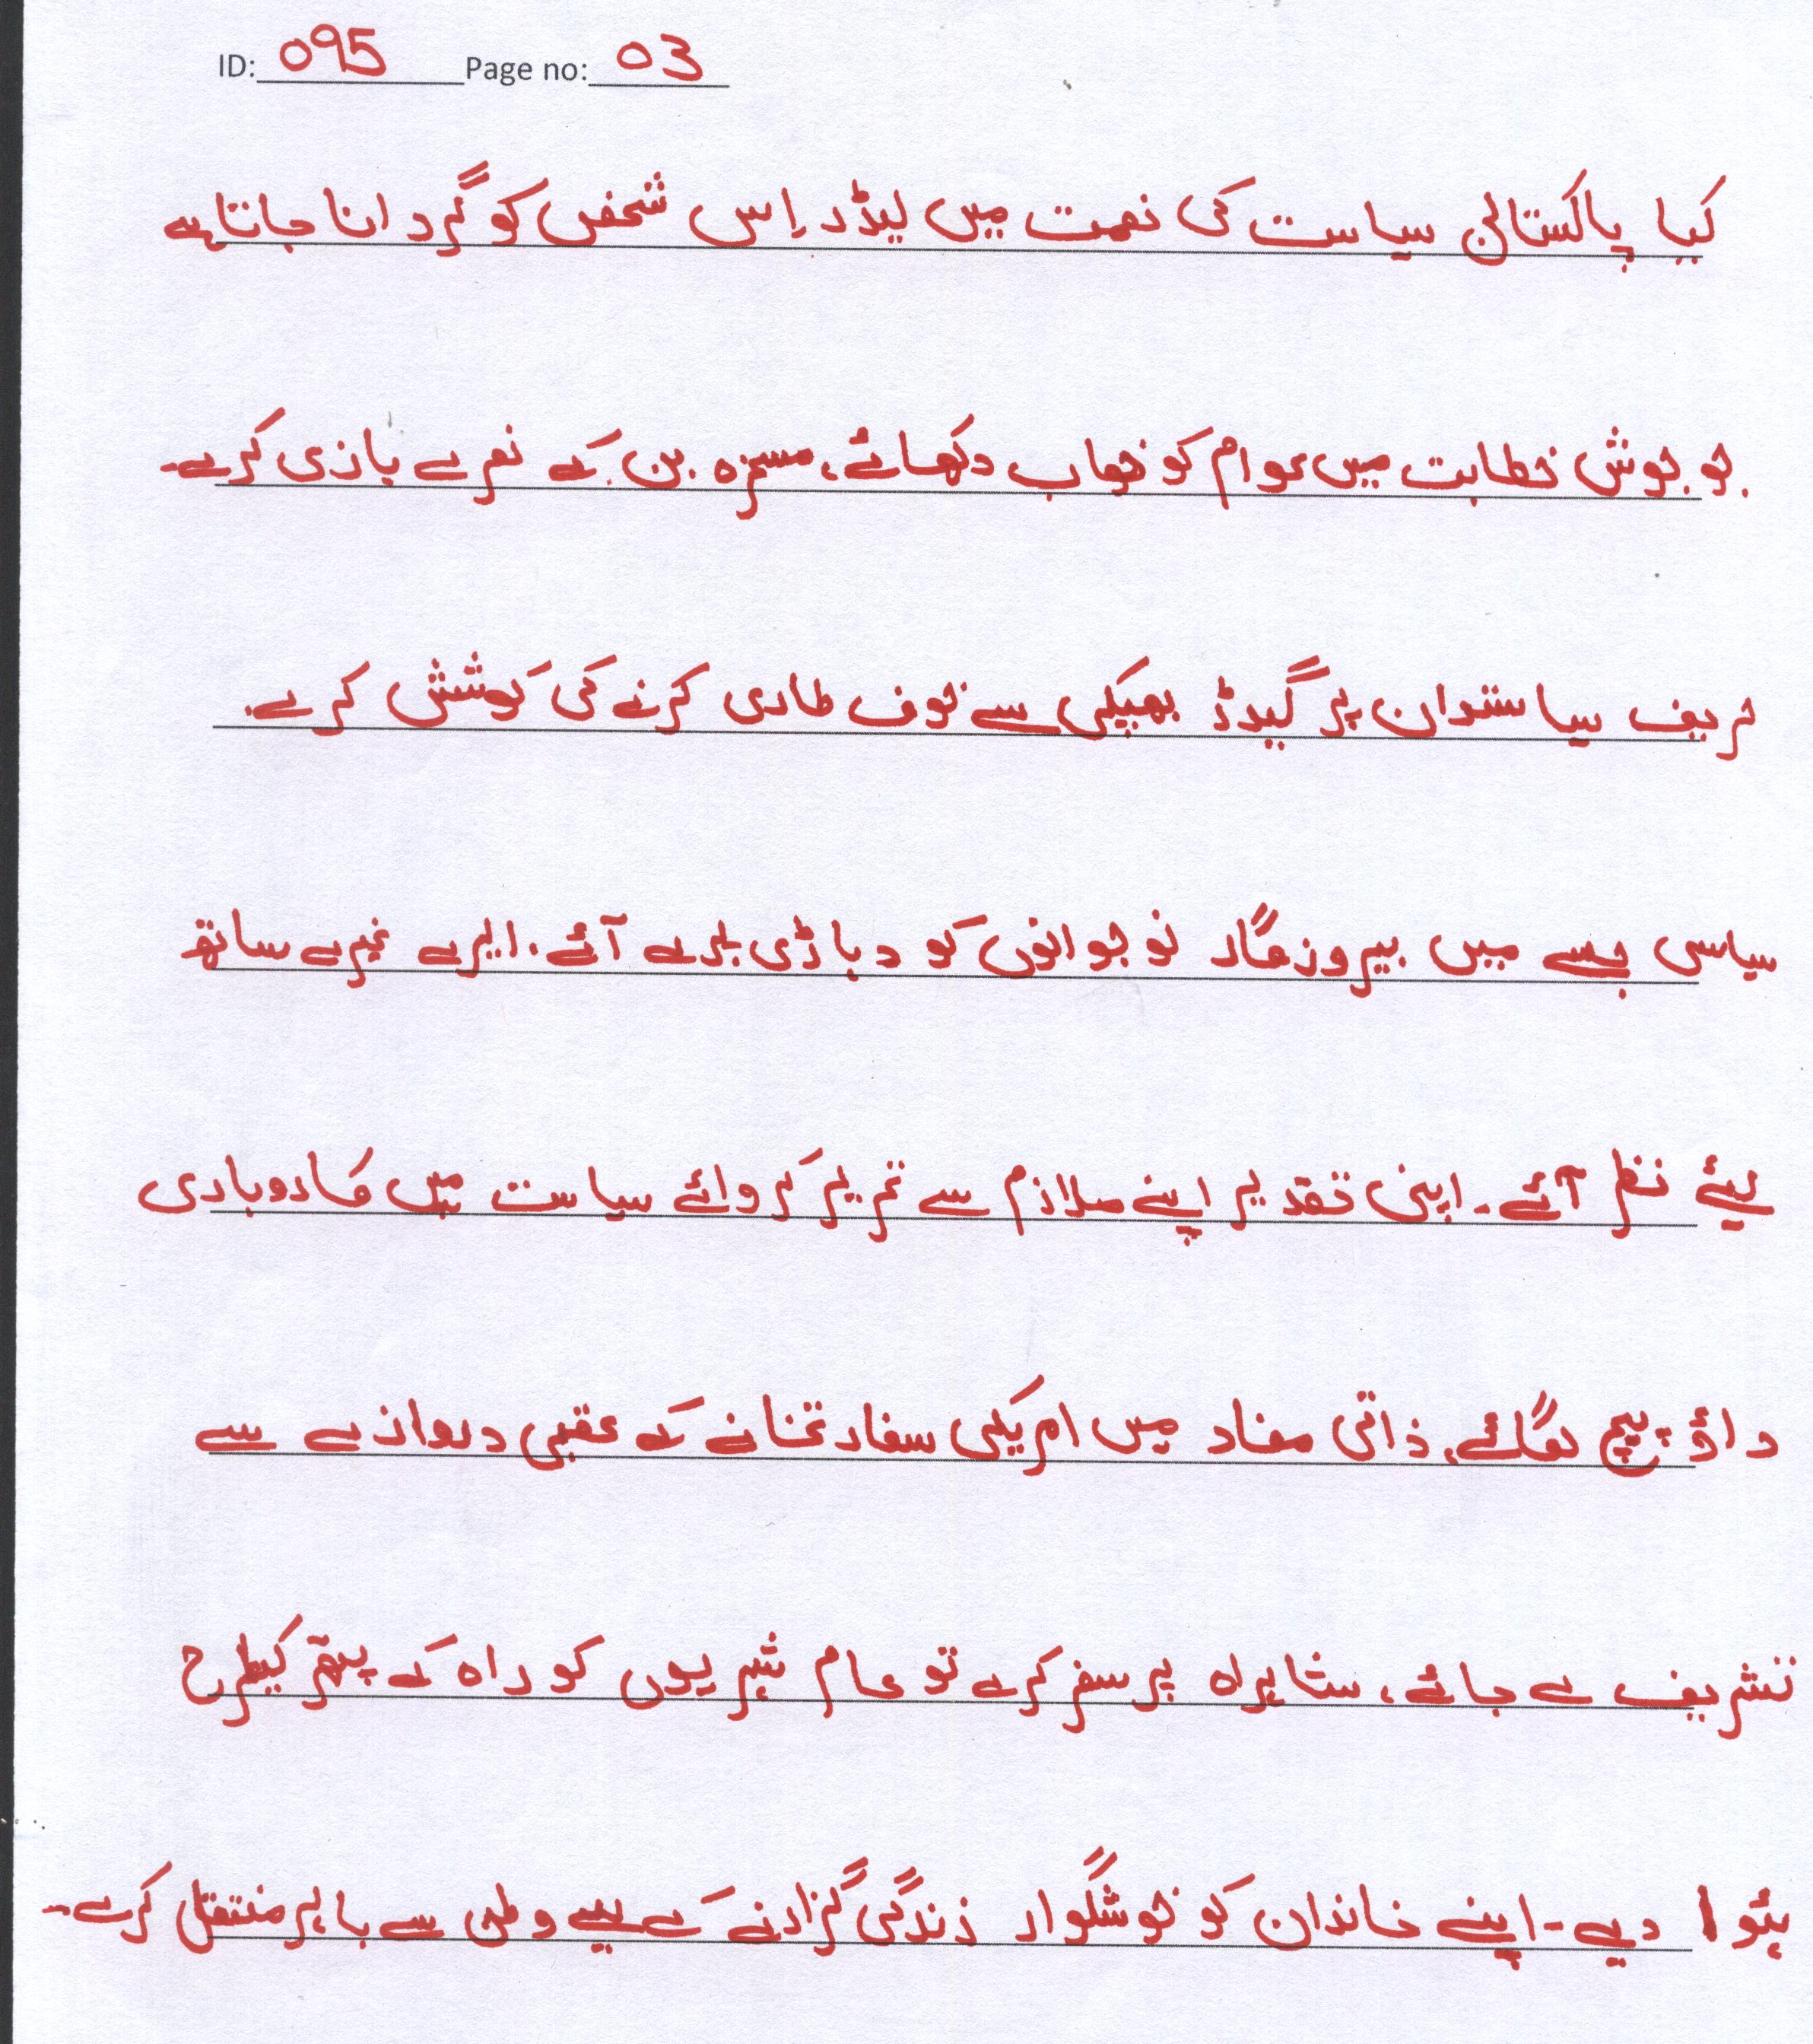 ID: 095 Page no: 03
کیا پاکستانی سیاست کی نعمت میں لیڈر اِس شخص کو گردانا جاتا ہے
جو جوش خطابت میں عوام کو خواب دکھائے، مسخرہ بن کے نعرے بازی کرے۔
حریف سیاستدان پر گیدڑ بھبکی سے خوف طاری کرنے کی کوشش کرے۔
سیاسی جلسے میں بیروزگار نوجوانوں کو دہاڑی پر لے آئے۔ ایرے غیرے ساتھ
لیئے نظر آئے۔ اپنی تقدیر اپنے ملازم سے تحریر کروائے سیاست میں کاروباری
داؤ پیچ لگائے، ذاتی مفاد میں امریکی سفارتخانے کے عقبی دروازے سے
تشریف لے جائے، شاہراہ پر سفر کرے تو عام شہریوں کو راہ کے پتھر کیطرح
ہٹوا دے۔ اپنے خاندان کو خوشگوار زندگی گزارنے کے لیے وطن سے باہر منتقل کرے۔